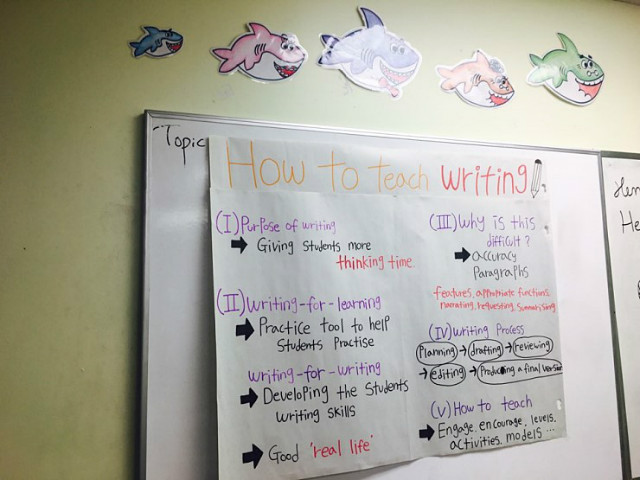 Topic
How to teach writing
(I) Purpose of writing
Giving Students more
thinking time
(II) Writing-for-learning
Practice tool to help
Students Practise
writing-for-writing
Developing the Students
writing skills
Good 'real life'
(III) Why is this
difficult?
accuracy
Paragraphs
features, appropriate functions,
narrating, requesting, summarising
(IV) Writing Process
Planning → drafting → reviewing
→ editing → Producing a final version
(V) How to teach
Engage, encourage, levels,
activities, models ...
He